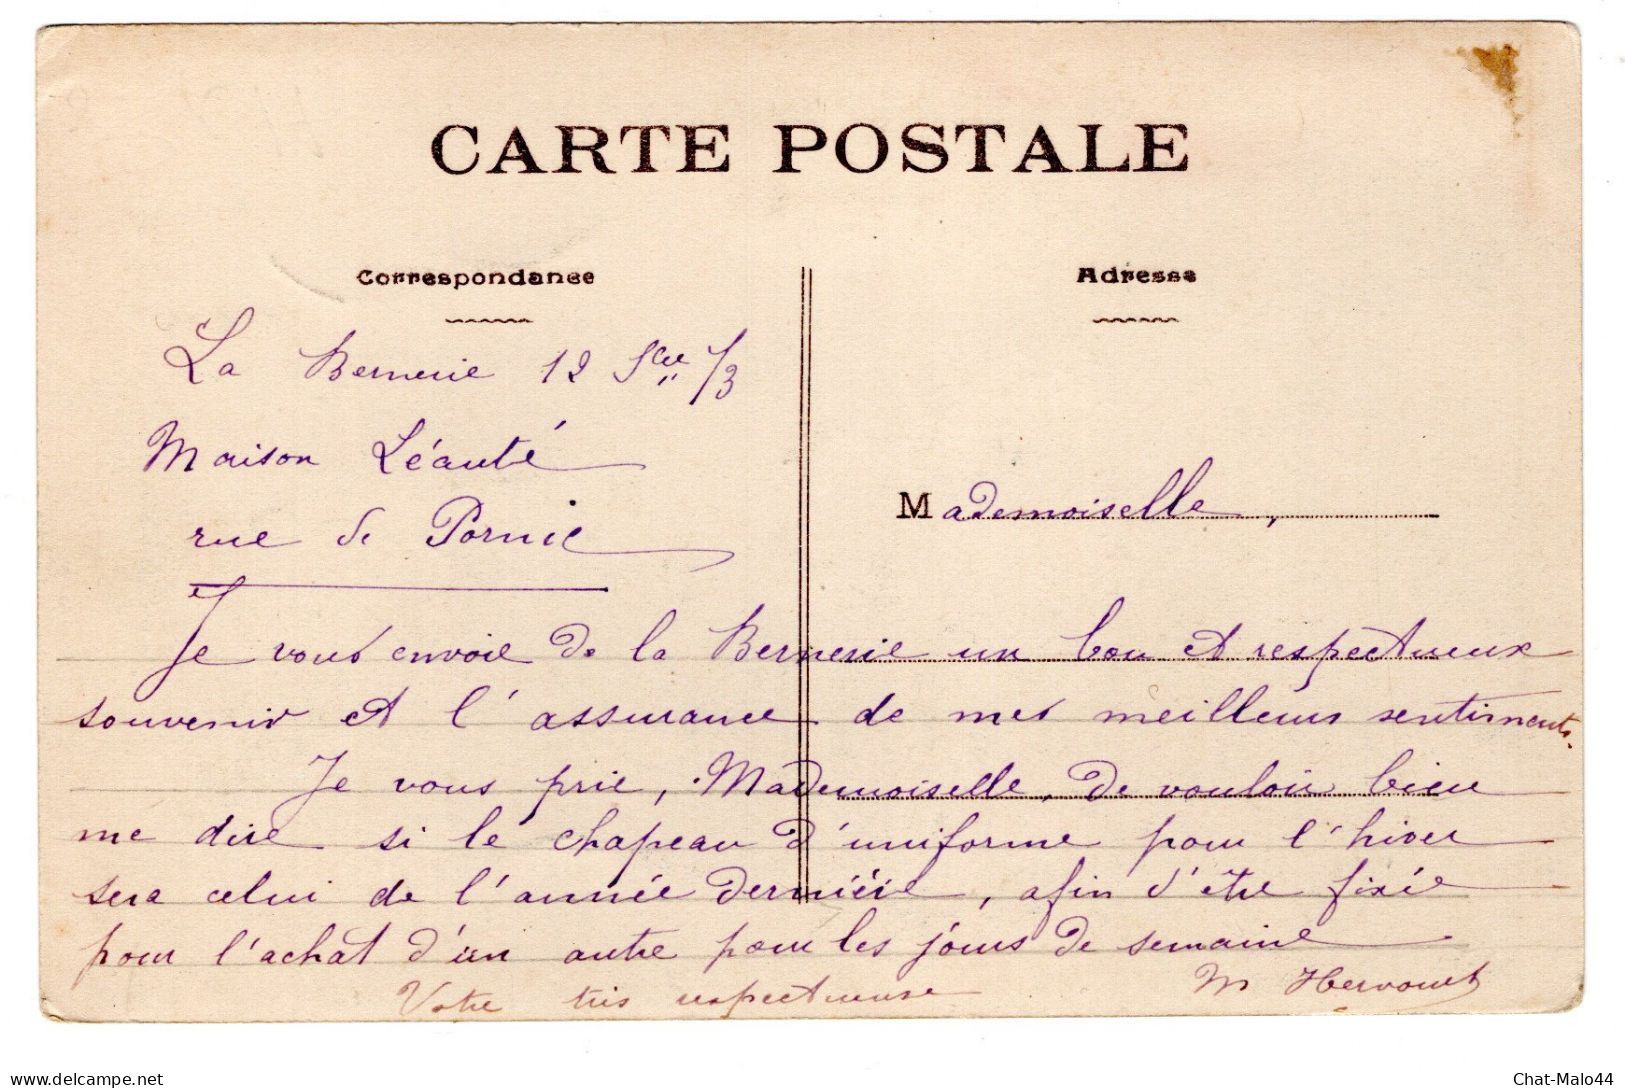 CARTE POSTALE
Correspondance
Adresse
La Bernerie 12
Maison Léauté
rue de Pornic
Mademoiselle,
Je vous envoie de la Bernerie un bon et respectueux
souvenir et l'assurance de mes meilleurs sentiments.
Je vous prie, Mademoiselle, de vouloir bien
me dire si le chapeau d'uniforme pour l'hiver
sera celui de l'année dernière, afin d'être fixée
pour l'achat d'un autre pour les jours de semaine
Votre très respectueuse
M Hervouet
www.delcampe.net
Chat-Malo44